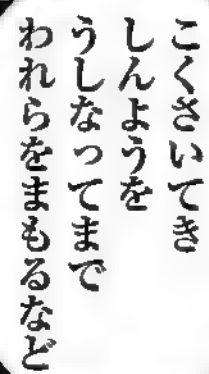 こくさいてき
しんようを
うしなってまで
われらをまもるなど